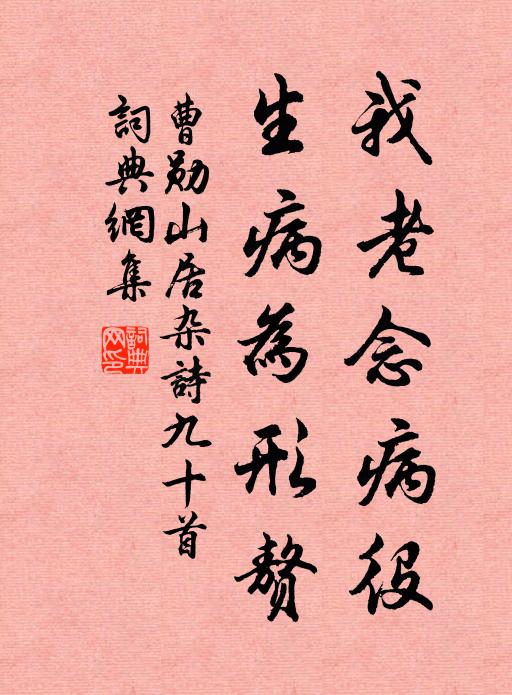 我老念病役
生病為形贅
曹勋山居杂詩九十首
詞典網集
詞典網印